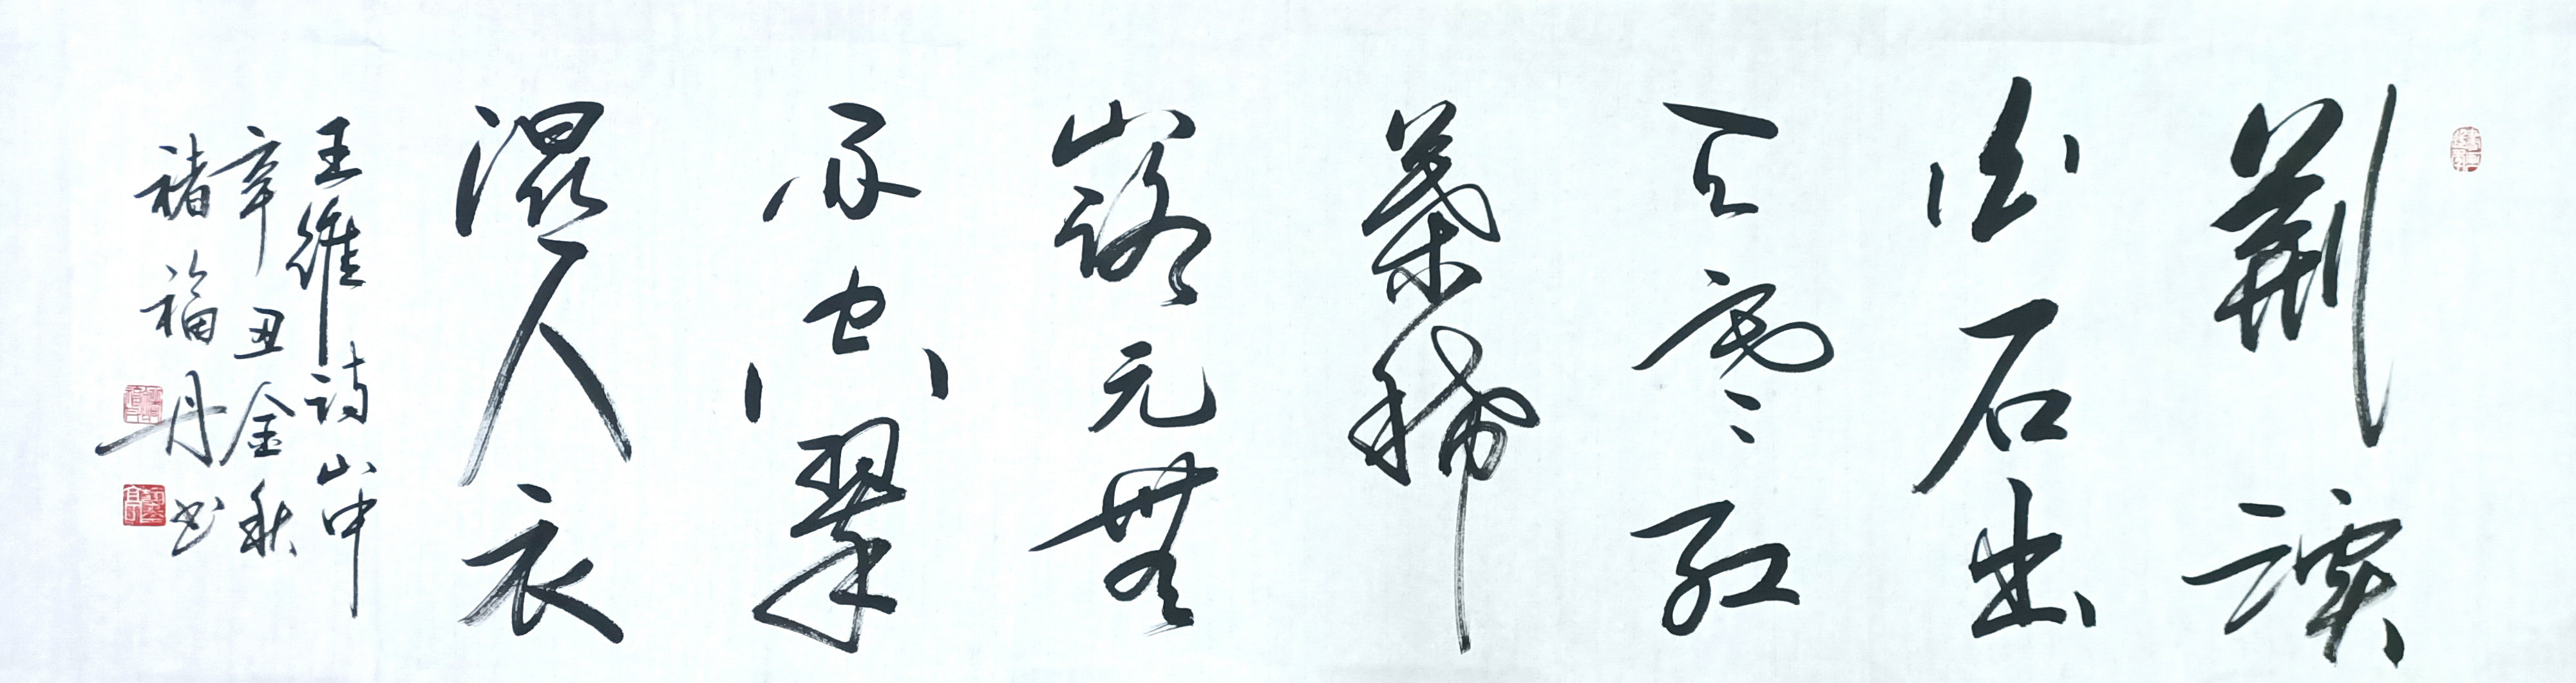 荆溪
白石出
天寒红
葉稀
山路元無
雨空翠
湿人衣
王維诗山中
辛丑金秋
褚福丹书